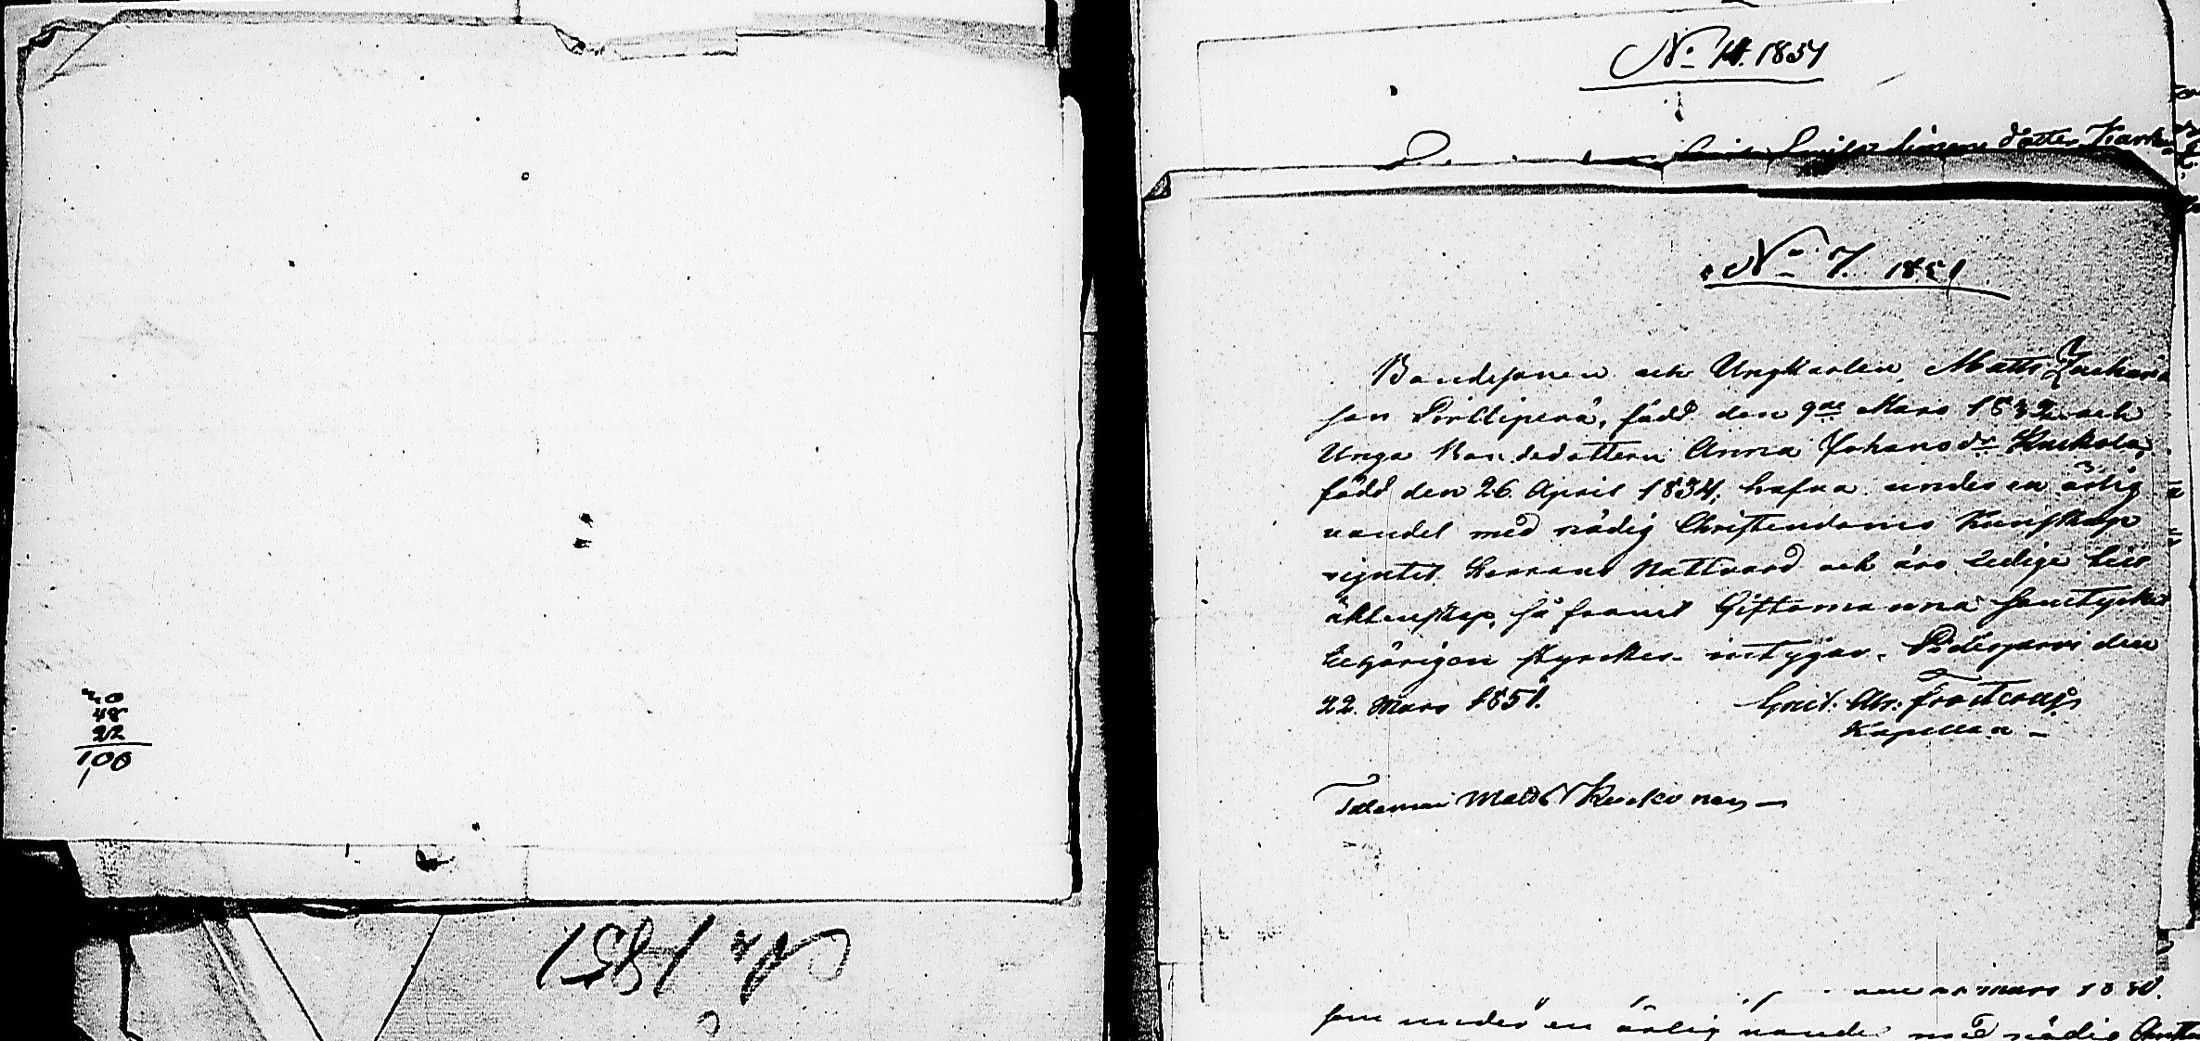 40
48
22
100
No 1851
No 11. 1851
dotter Kark
No 7. 1851
Bondesonen och Ungkarlen Matts Zachari
son Pirttiperä, född den 9de Mars 1832 och
Unga Bondedottern Anna Johansdr Kuckola,
född den 26 April 1834, hafva under en ärlig
vandel med nödig Christendoms Kunskap
njutit Herrans Nattvard och äro ledige till
äktenskap, så framt Giftomanna samtycke
behörigen styrckes intygar. Pidisjärvi den
22. Mars 1851. Frostterus
Kapellan
Talaman Matts Kuckonen
mars 18
som under en ärlig vandel med nödig Christen